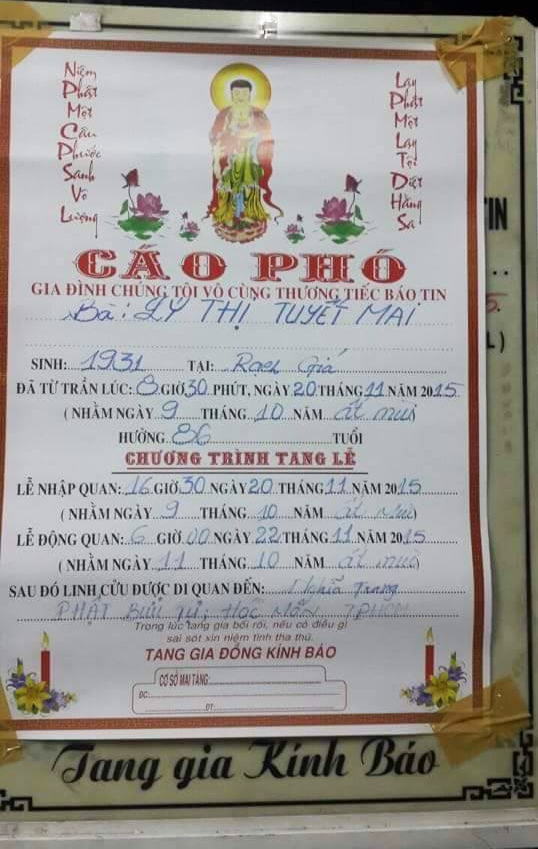 Niệm Phật Một Câu Phước Sanh Vô Lượng
Lạy Phật Một Lạy Tội Diệt Hằng Sa
CÁO PHÓ
GIA ĐÌNH CHÚNG TÔI VÔ CÙNG THƯƠNG TIẾC BÁO TIN
Bà: LÝ THỊ TUYẾT MAI
SINH: 1931 TẠI: Rạch Giá
ĐÃ TỪ TRẦN LÚC: 8 GIỜ 30 PHÚT, NGÀY 20 THÁNG 11 NĂM 2015
( NHẰM NGÀY 9 THÁNG 10 NĂM ất mùi )
HƯỞNG 86 TUỔI
CHƯƠNG TRÌNH TANG LỄ
LỄ NHẬP QUAN: 16 GIỜ 30 NGÀY 20 THÁNG 11 NĂM 2015
( NHẰM NGÀY 9 THÁNG 10 NĂM ất Mùi )
LỄ ĐỘNG QUAN: 6 GIỜ 00 NGÀY 22 THÁNG 11 NĂM 2015
( NHẰM NGÀY 11 THÁNG 10 NĂM ất mùi )
SAU ĐÓ LINH CỬU ĐƯỢC DI QUAN ĐẾN: Nghĩa Trang
PHẬT BỬU TỰ, HÓC MÔN TPHCM
Trong lúc tang gia bối rối, nếu có điều gì
sai sót xin niệm tình tha thứ.
TANG GIA ĐỒNG KÍNH BÁO
CƠ SỞ MAI TÁNG:
ĐC:
ĐT:
Tang gia Kính Báo
IN
5.
L)